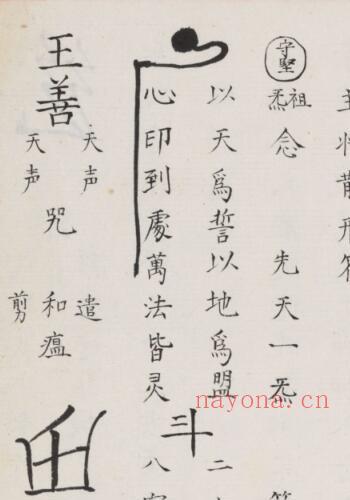 主将散形符
守堅
祖炁念 先天一炁
以天爲誓以地爲盟
心印到處萬法皆灵
斗
二
八
王善
天声
天声
咒
遣
和瘟
剪
nayona.cn